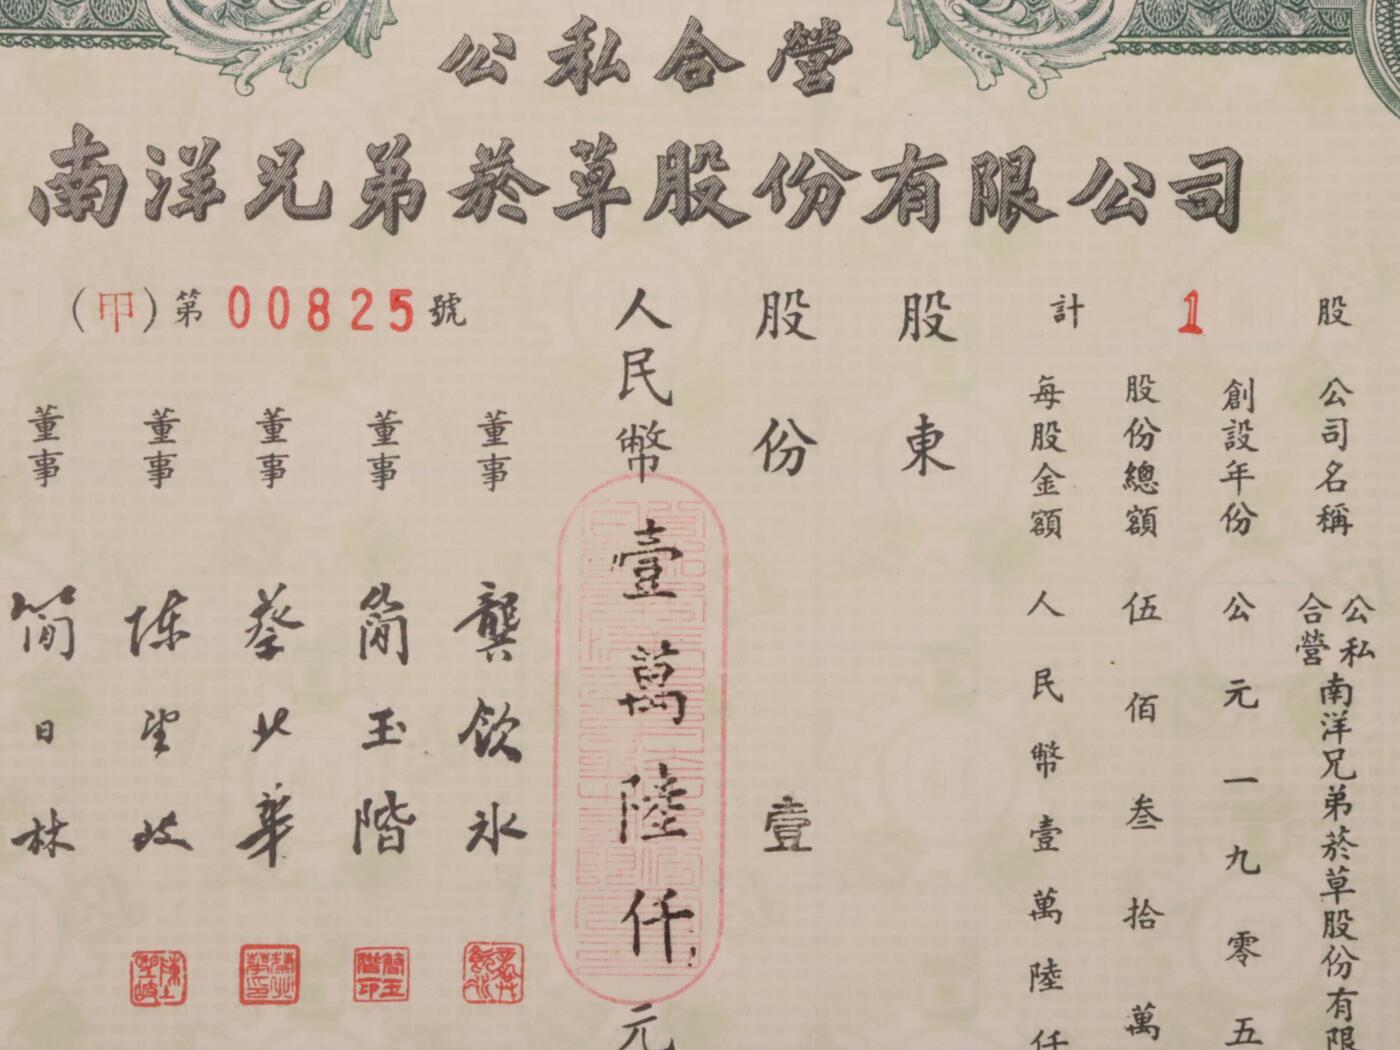 公私合營
南洋兄弟菸草股份有限公司
(甲)第00825號
計 1 股
公司名稱 公私合營南洋兄弟菸草股份有限
創設年份 公元一九零五
股份總額 伍佰叁拾萬
每股金額 人民幣壹萬陸仟
股東
股份 壹
人民幣壹萬陸仟元
董事 龔飲冰
董事 簡玉階
董事 蔡北華
董事 陳望岐
董事 簡日林